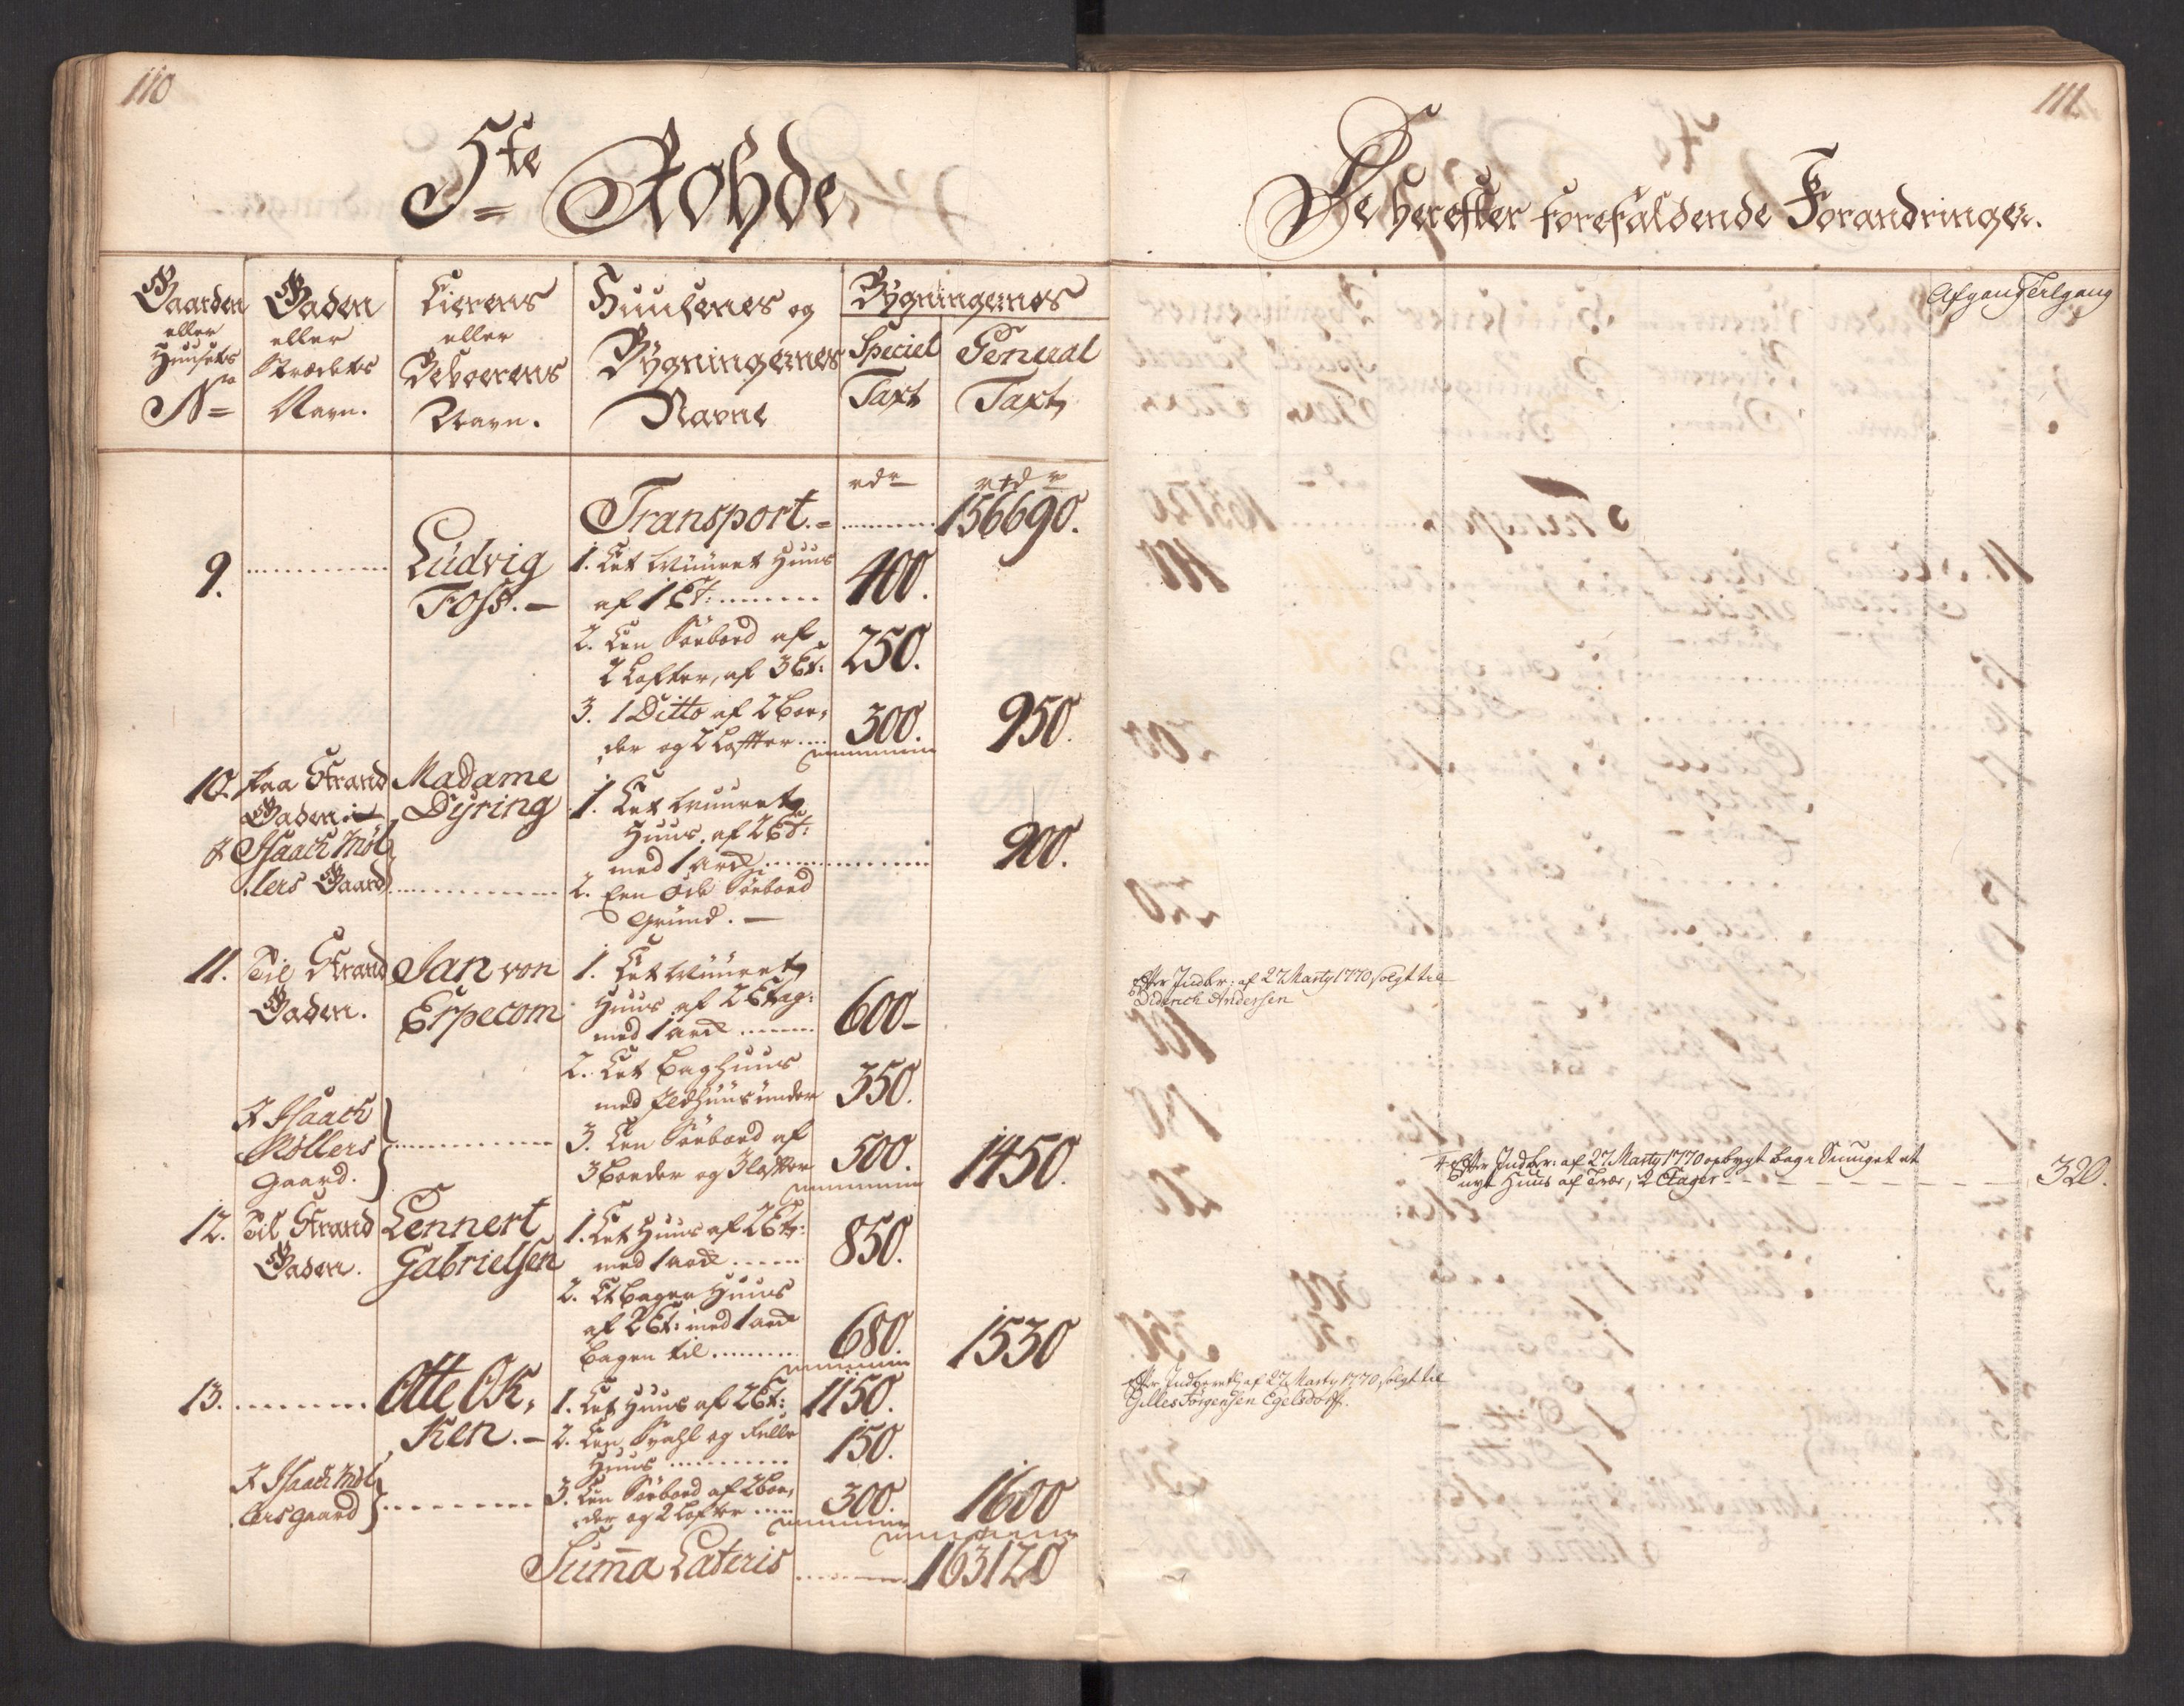 110
5te Rohde
Gaarden eller Huusets No
Gaden eller Strædets Navn.
Eierens eller Beboerens Navn.
Huusenes og Bygningernes Navne
Bygningernes
Speciel Taxt
General Taxt
rdr
rtdr
Transport.= 156690.
9. Ludvig Foss.
1. Eet Muuret Huus
af 1 Et: 400.
2. Een Söeboed af
2 Lofter, af 3 Et: 250.
3. 1 Ditto af 2 Boe,
der og 2 Loffter 300. 950.
10. Paa Strand Gaden i Madame Dÿring
1. Eet Muuret
Huus af 2 Et:
med 1 Ark 900.
I Isaach Möl
lers Gaard
2. Een Öde Söeboed
Grund.
11. Til Strand Gaden. Jan von Erpecom
1. Eet Muuret
Huus af 2 Etag:
med 1 Ark 600
2. Eet Baghuus
med Ildhuus under 350.
I Isaach
Möllers
Gaard.
3. Een Söeboed af
3 Boeder og 3 Lofter 500. 1450.
12. Til Strand Gaden. Lennert Gabrielsen
1. Eet Huus af 2 Et:
med 1 Ark 850.
2. Et Bagen Huus
af 2 Et: med 1 Ark
bagen til 680. 1530
13. Otte Ok,
ken.
1. Eet Huus af 2 Et: 1150.
2. Een Svahl og Fælle
Huus 150.
I Isaach Möl
lers Gaard
3. Een Söeboed af 2 Boe,
der og 2 Lofter 300. 1600
Summa Lateris 163120
111.
De herefter forefaldende Forandringer.
Afgang Tilgang
Efter Indber: af 27 Marty 1770 solgt til
Diderich Andersen
Efter Indber: af 27 Marty 1770 opbygt bag i Smuget et
nyt Huus af Træe, 2 Etager 320.
Efter Indberetg af 27 Marty 1770 solgt til
Gilles Jörgensen Egelsdorff.